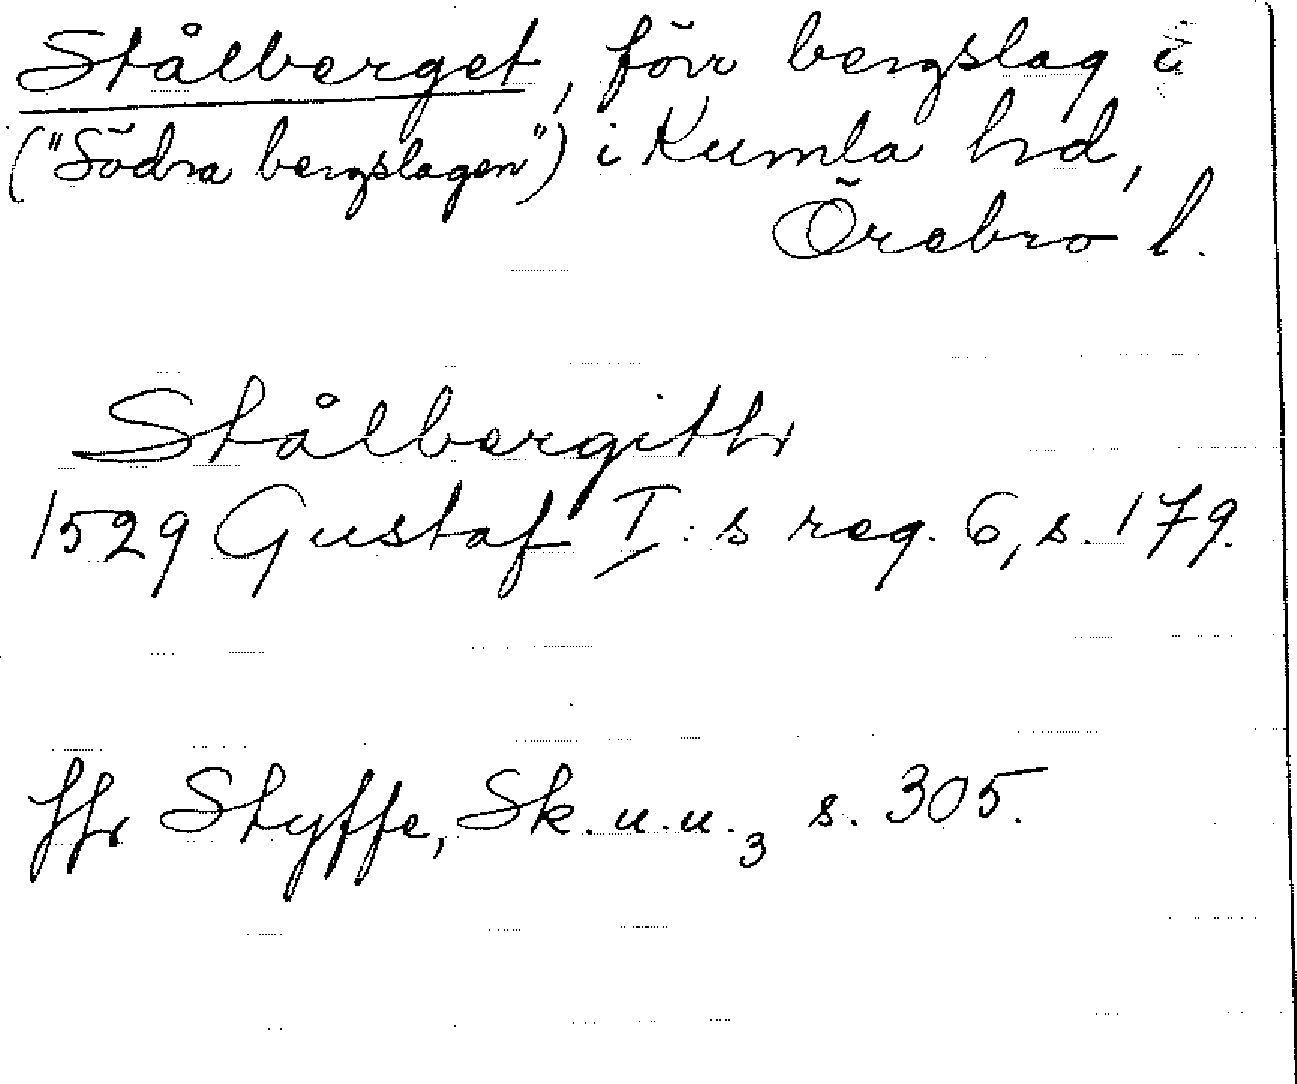 Stålberget, förr bergslag i
("Södra bergslagen") i Kumla hd,
Örebro l.
Stålbergith
1529 Gustaf I:s reg. 6, s. 179.
Jfr Styffe, Sk. u. u. 3 s. 305.